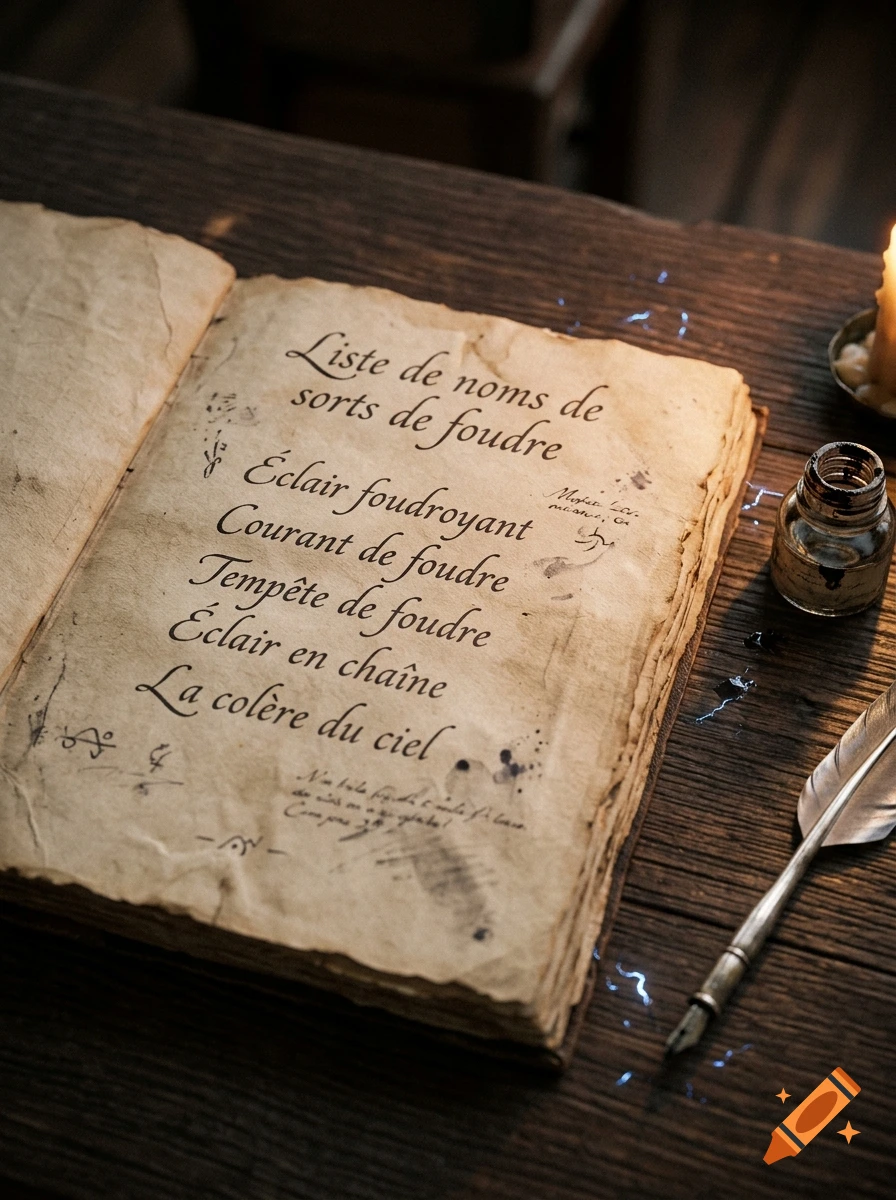 Liste de noms de
sorts de foudre
Éclair foudroyant
Courant de foudre
Tempête de foudre
Éclair en chaîne
La colère du ciel